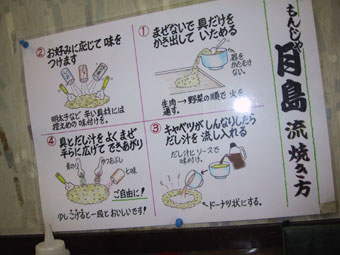 もんじゃ
月島流焼き方
① まぜないで具だけを
かき出していためる
器をかたむけない。
生肉→野菜の順で火を
通す。
② お好みに応じて味を
つけます
明太子など辛い具材には
控えめの味付けを。
③ キャベツがしんなりしたら
だし汁を流し入れる
だし汁にソースで
味付け。
ドーナツ状にする。
④ 具とだし汁をよくまぜ
平らに広げてできあがり
青のり
かつおぶし
七味
ご自由に!
少しこげると一段とおいしいです!